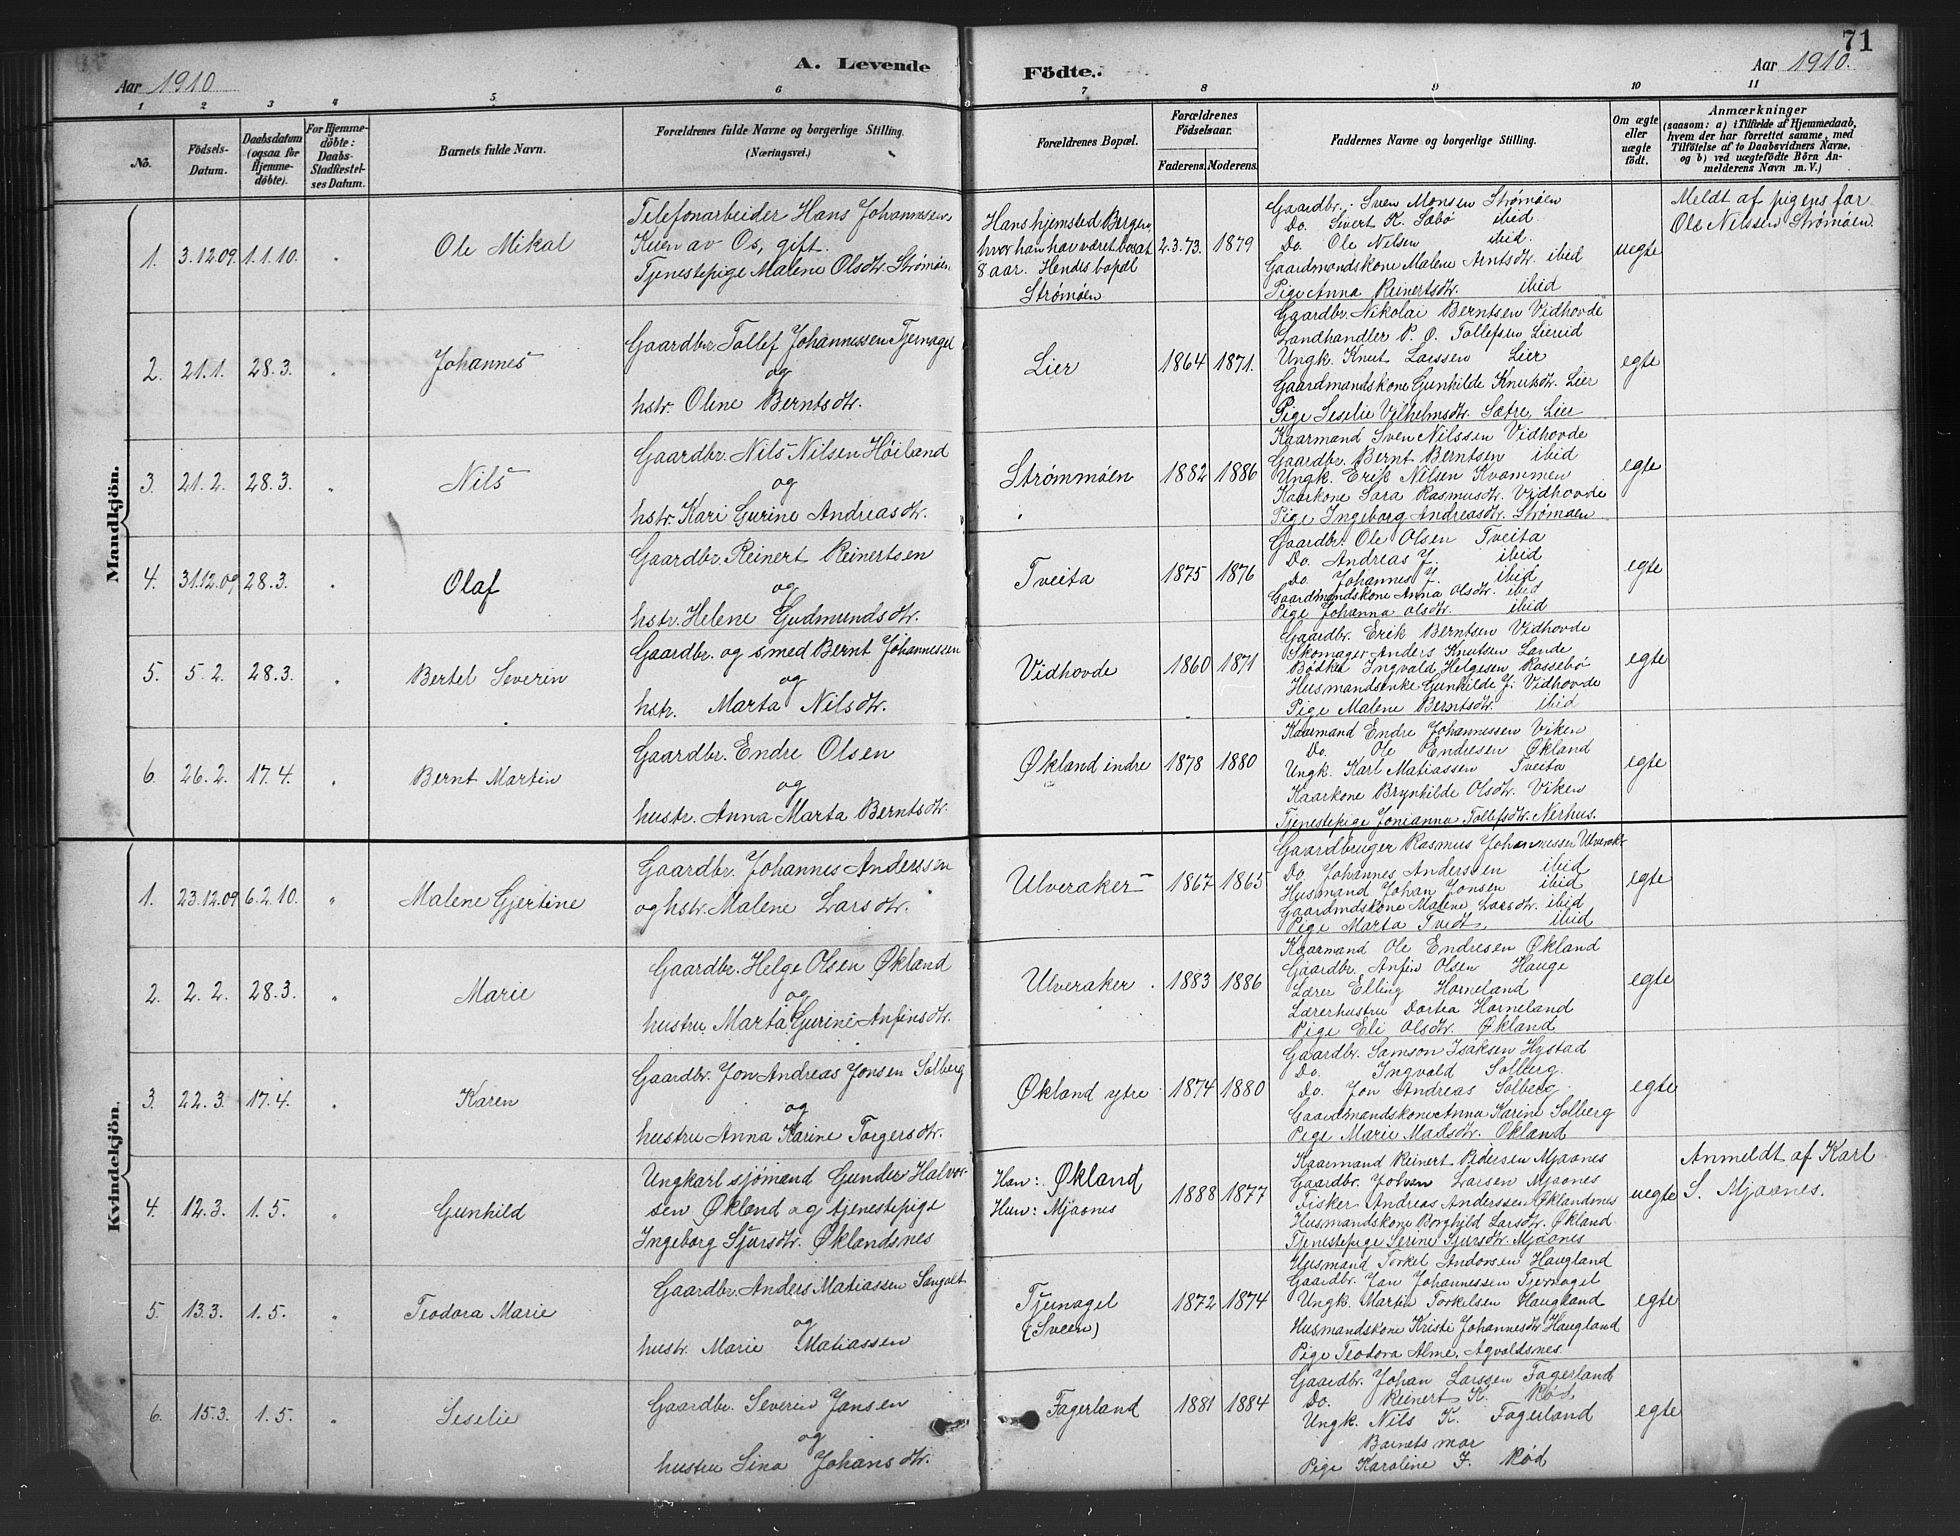 71
A. Levende Födte.
Aar 1910
Aar 1910.
1 2 3 4 5 6 7 8 9 10 11
No.
Födsels-Datum.
Daabsdatum (ogsaa for Hjemme-döbte).
For Hjemme-döbte: Daabs-Stadfæstel-ses Datum.
Barnets fulde Navn.
Forældrenes fulde Navne og borgerlige Stilling. (Næringsvei.)
Forældrenes Bopæl.
Forældrenes Födselsaar.
Faderens. Moderens.
Faddernes Navne og borgerlige Stilling.
Om ægte eller uægte födt.
Anmærkninger
(saasom: a) i Tilfælde af Hjemmedaab, hvem der har forrettet samme, med Tilföielse af to Daabsvidners Navne, og b) ved uægtefödte Börn An-melderens Navn m. V.)
Mandkjön.
1. 3.12.09. 1.1.10. " Ole Mikal
Telefonarbeider Hans Johannessen
Kuen av Os, gift.
Tjenestepige Malene Olsdtr. Strømøen
Hans hjemsted Bergen
hvor han har været bosat
8 aar. Hendes bopæl
Strømøen
2.3.73. 1879
Gaardbr. Sven Monsen Strømøen
Do. Sivert K. Sabø ibid.
Do. Ole Nilsen ibid.
Gaardmandskone Malene Arntsdtr. ibid
Pige Anna Reinertsdtr. ibid
uegte
Meldt af pigens far
Ole Nilssen Strømøen.
2. 21.1. 28.3. " Johannes
Gaardbr. Tollef Johannessen Tjernagel
og
hstr. Oline Berntsdtr.
Lier
1864 1871.
Gaardbr. Nikolai Berntsen Vidhovde
Landhandler P. O. Tollefsen Liereid
Ungk. Knut Larssen Lier
Gaardmandskone Gunhilde Knutsdtr. Lier
Pige Seselie Vilhelmsdtr. Sætre, Lier
egte
3. 21.2. 28.3. " Nils
Gaardbr. Nils Nilsen Høiland
og
hstr. Kari Gurine Andreasdtr.
Strømmøen
1882 1886
Kaarmand Sven Nilssen Vidhovde
Gaardbr. Bernt Berntsen ibid
Ungk. Erik Nilsen Kvammen
Kaarkone Sara Rasmusdtr. Vidhovde
Pige Ingeborg Andreasdtr. Strømøen
egte
4. 31.12.09 28.3. " Olaf
Gaardbr. Reinert Reinertsen
og
hstr. Helene Gudmundsdtr.
Tveita
1875 1876
Gaardbr. Ole Olsen Tveita
Do. Andreas J. ibid
Do. Johannes J. ibid
Gaardmandskone Anna Olsdtr. ibid
Pige Johanna Olsdtr. ibid
egte
5. 5.2. 28.3. " Bertel Severin
Gaardbr. og smed Bernt Johannessen
og
hstr. Marta Nilsdtr.
Vidhovde
1860 1871
Gaardbr. Erik Berntsen Vidhovde
Skomager Anders Knutsen Lande
Bødker Ingvald Helgesen Rossebø
Husmandsenke Gunhilde J. Vidhovde
Pige Malene Berntsdtr. ibid
egte
6. 26.2. 17.4. " Bernt Martin
Gaardbr. Endre Olsen
og
hustr. Anna Marta Berntsdtr.
Økland indre
1878 1880
Kaarmand Endre Johannessen Viken
Do. Ole Endresen Økland
Ungk. Karl Matiassen Tveita
Kaarkone Brynhilde Olsdtr. Viken
Tjenestepige Jonianna Tollefsdtr. Nerhus.
egte
Kvindekjön.
1. 23.12.09 6.2.10. " Malene Gjertine
Gaardbr. Johannes Anderssen
og hstr. Malene Larsdtr.
Ulveraker
1867 1865
Gaardbruger Rasmus Johannessen Ulveraker
Do. Johannes Anderssen ibid
Husmand Johan Jonsen ibid
Gaardmdskone Malene Larsdtr. ibid
Pige Marta Tvedt, ibid
egte
2. 2.2. 28.3. " Marie
Gaardbr. Helge Olsen Økland
og
hustru Marta Gurine Anfinsdtr.
Ulveraker
1883 1886
Kaarmand Ole Endresen Økland
Gaardbr. Anfin Olsen Hauge
Lærer Elling Horneland
Lærerhustru Dortea Horneland
Pige Eli Olsdtr. Økland
egte
3. 22.3. 17.4. " Karen
Gaardbr. Jon Andreas Jonsen Solberg
og
hustru Anna Karine Torgersdtr.
Økland ytre
1874 1880
Gaardbr. Samson Isaksen Hystad
Do. Ingvald Solberg.
Do. Jon Andreas Solberg
Gaardmandskone Anna Karine Solberg
Pige Marie Madsdtr. Økland
egte
4. 12.3. 1.5. " Gunhild
Ungkarl sjømand Gunder Halvor-
sen Økland og tjenestepige
Ingeborg Sjursdtr. Øklandsnes
Han: Økland
Hun: Mjaanes
1888 1877
Kaarmand Reinert Pedersen Mjaanes
Gaardbr. Johan Larsen Mjaanes
Fisker Andreas Anderssen Øklandsnes
Husmandskone Borghild Larsdtr. Økland
Tjenestepige Serine Sjursdtr. Mjaanes
uegte
Anmeldt af Karl
S. Mjaanes.
5. 13.3. 1.5. " Teodora Marie
Gaardbr. Anders Matiassen
og
hustr. Marie Matiassen
Tjernagel
(Sveen)
1872 1874
Husmand Torkel Andorsen Haugland
Gaardbr. Jan Johannessen Tjernagel
Ungk. Martin Torkelsen Haugland
Husmandskone Kristi Johannesdtr Haugland
Pige Teodora Alme, Agvaldsnes
egte
6. 15.3. 1.5. " Seselie
Gaardbr. Severin Jansen
og
hustru Sina Johansdtr.
Fagerland
1881 1884
Gaardbr. Johan Larssen Fagerland
Do. Reinert K. Rød
Ungk. Nils K. Fagerland
Barnets mor
Pige Karoline J. Rød
egte